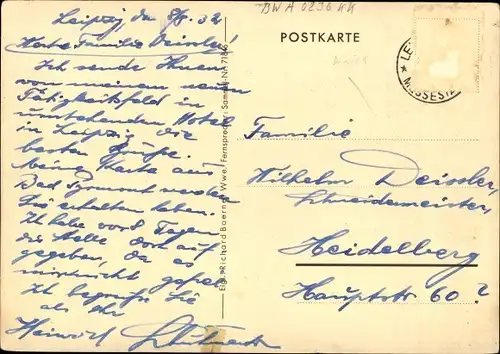 Leipzig, den 8/5. 32
Werte Familie Deissler!
Ich sende Ihnen
von meinem neuen
Tätigkeitsfeld in
umstehenden Hotel
in Leipzig die
besten Grüße.
Meine Karte aus
Bad Pyrmont werden
Sie erhalten haben.
Ich habe vor Tagen
die Stelle dort auf
gegeben, da es
mir nicht gefiel
Ich begrüße Sie
als Ihr
Heinrich
Richard Boerner Wwe., Fernsprecher, Sammel-Nr. 7114
BWA 0236 KK
POSTKARTE
MESSESTADT
Familie
Wilhelm Deissler,
Schneidermeister,
Heidelberg
Hauptstr 60?